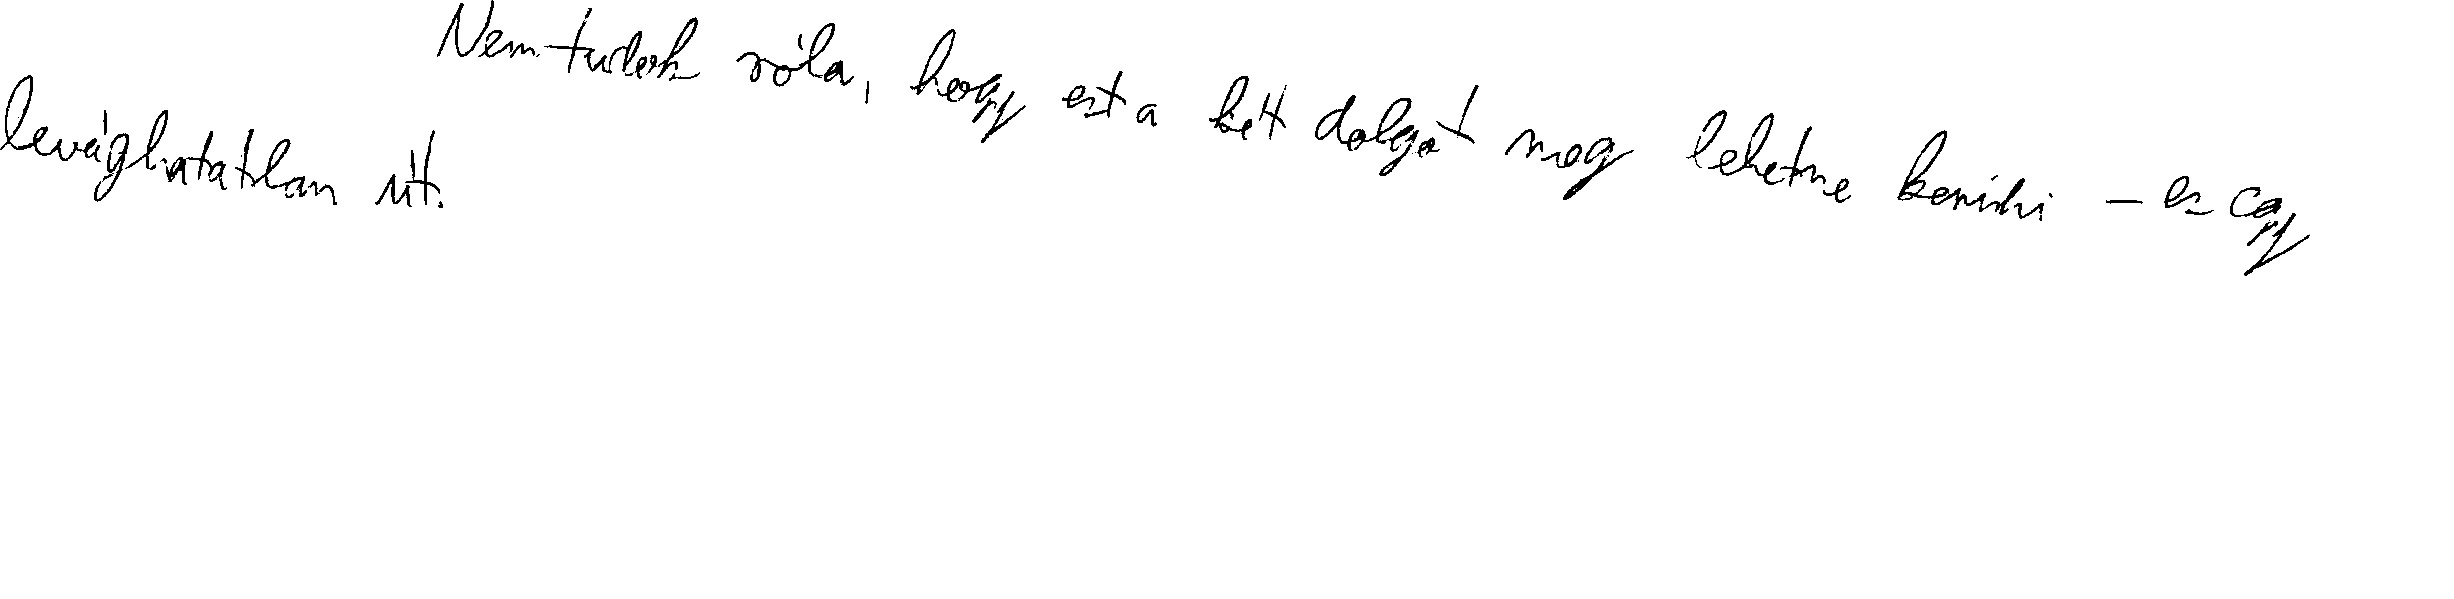 Nem tudok róla, hogy ezt a két dolgot meg lehetne kerülni – ez egy
levághatatlan út.